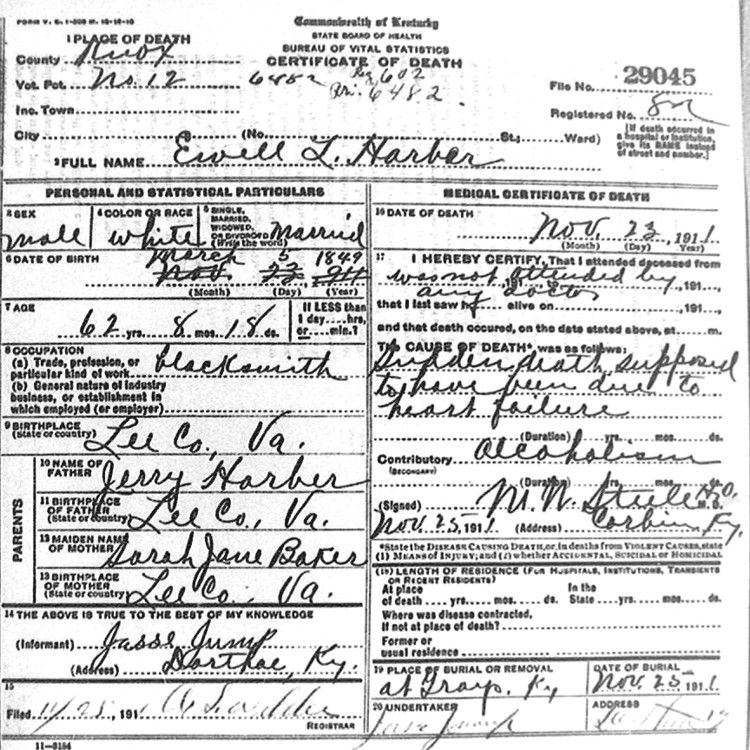 FORM V. S. 1-
Commonwealth of Kentucky
STATE BOARD OF HEALTH
BUREAU OF VITAL STATISTICS
CERTIFICATE OF DEATH
1 PLACE OF DEATH
County Knox
Vot. Pct. No. 12 6482 Reg 602
Pri. 6482
File No. 29045
Inc. Town
Registered No. 82
City (No. St.; Ward)
[If death occurred in a hospital or institution, give its NAME instead of street and number.]
2 FULL NAME Ewell L. Harber
PERSONAL AND STATISTICAL PARTICULARS
3 SEX male
4 COLOR OR RACE white
5 SINGLE, MARRIED, WIDOWED, OR DIVORCED (Write the word) Married
6 DATE OF BIRTH March 5 1849
Nov. 23 1911
(Month) (Day) (Year)
7 AGE 62 yrs. 8 mos. 18 ds.
If LESS than 1 day....hrs. or....min.?
8 OCCUPATION
(a) Trade, profession, or particular kind of work blacksmith
(b) General nature of industry
business, or establishment in
which employed (or employer)
9 BIRTHPLACE (State or country) Lee Co., Va.
PARENTS
10 NAME OF FATHER Jerry Harber
11 BIRTHPLACE OF FATHER (State or country) Lee Co., Va.
12 MAIDEN NAME OF MOTHER Sarah Jane Baker
13 BIRTHPLACE OF MOTHER (State or country) Lee Co., Va.
14 THE ABOVE IS TRUE TO THE BEST OF MY KNOWLEDGE
(Informant) Jasse Jump
(Address) Dorthae, Ky.
15
Filed 11/25, 191
REGISTRAR
11-3184
MEDICAL CERTIFICATE OF DEATH
16 DATE OF DEATH
Nov. 23, 1911
(Month) (Day) (Year)
17 I HEREBY CERTIFY, That I attended deceased from
was not attended by, 191
any doctor
that I last saw h alive on , 191
and that death occured, on the date stated above, at m.
THE CAUSE OF DEATH*, was as follows:
Sudden death supposed
to have been due to
heart failure
(Duration) yrs. mos. ds.
Contributory Alcoholism
(SECONDARY)
(Duration) yrs. mos. ds.
(Signed) M. W. Steele M. D.
Nov. 25, 1911 (Address) Corbin Ky.
*State the DISEASE CAUSING DEATH, or, in deaths from VIOLENT CAUSES, state
(1) MEANS OF INJURY; and (2) whether ACCIDENTAL, SUICIDAL or HOMICIDAL
(18) LENGTH OF RESIDENCE (FOR HOSPITALS, INSTITUTIONS, TRANSIENTS
OR RECENT RESIDENTS)
At place of death yrs. mos. ds. In the State yrs. mos. ds.
Where was disease contracted,
If not at place of death?
Former or
usual residence
19 PLACE OF BURIAL OR REMOVAL
at Grays, Ky
DATE OF BURIAL
Nov. 25 1911
20 UNDERTAKER
ADDRESS